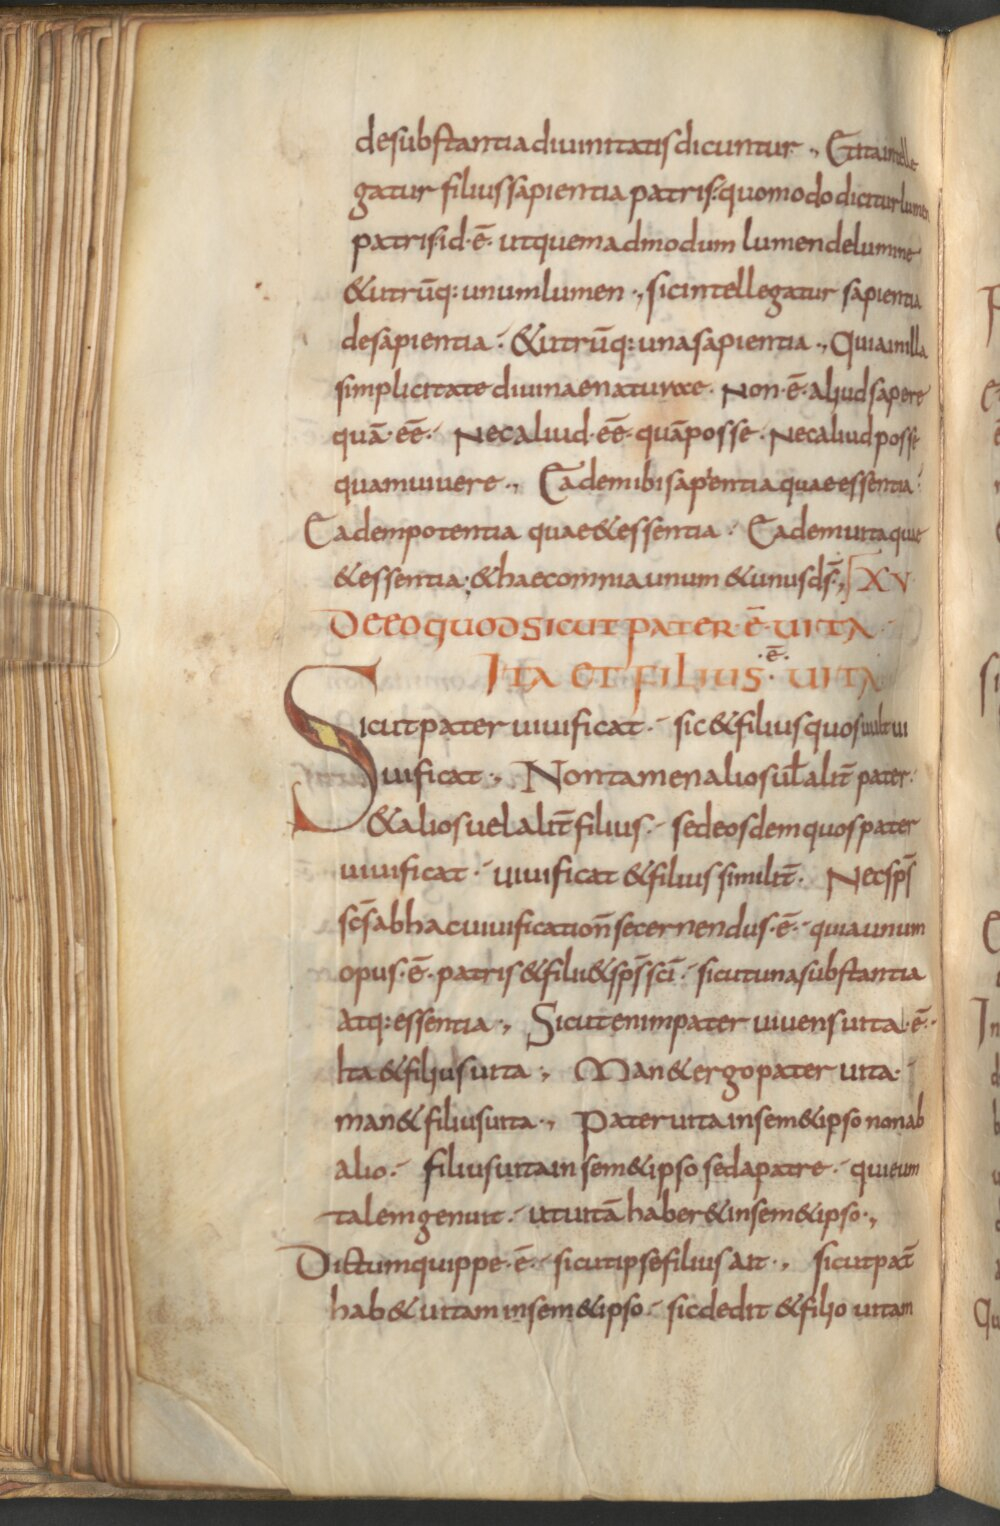 desubstantia diuinitatis dicuntur ., Et ita intelle
gatur filius sapientia patris: quomodo dicitur lumen
patris. id·ē· ut quemadmodum lumen de lumine
& utrūq: unum lumen ., sic intellegatur sapientia
de sapientia . & utrūq: una sapientia ., Quia in illa
simplicitate diuinae naturae. Non·ē· aliud sapere
quā·eē· Nec aliud·eē· quā posse . Nec aliud posse
quam uiuere ., Eadem ibi sapientia quae essentia .
Eadem potentia quae & essentia . Eadem uita quae
& essentia . & haec omnia unum & unus ds̄ ., XV
DE EO QUOD SICUT PATER·Ē·UITA
ITA ET FILIUS·ē·UITA
Sicut pater uiuificat . sic & filius quos uult ui
uificat ., Non tamen alios ul̄ alit̄ pater .
& alios uel alit̄ filius . sed eosdem quos pater
uiuificat . uiuificat & filius similit̄. Nec sp̄s
sc̄s ab hac uiuification̄ secernendus·ē· quia unum
opus·ē· patris & filii & sp̄s sc̄i . sicut una substantia
atq: essentia ., Sicut enim pater uiuens uita·ē·
Ita & filius uita ., Man& ergo pater uita .
man& filius uita ., Pater uita in sem&ipso non ab
alio . filius uita in sem&ipso sed a patre . qui eum
talem genuit . ut uitā haber& in sem&ipso .,
Dictum quippe·ē· sicut ipse filius ait ., sicut pat̄
hab& uitam in sem&ipso . sic dedit & filio uitam